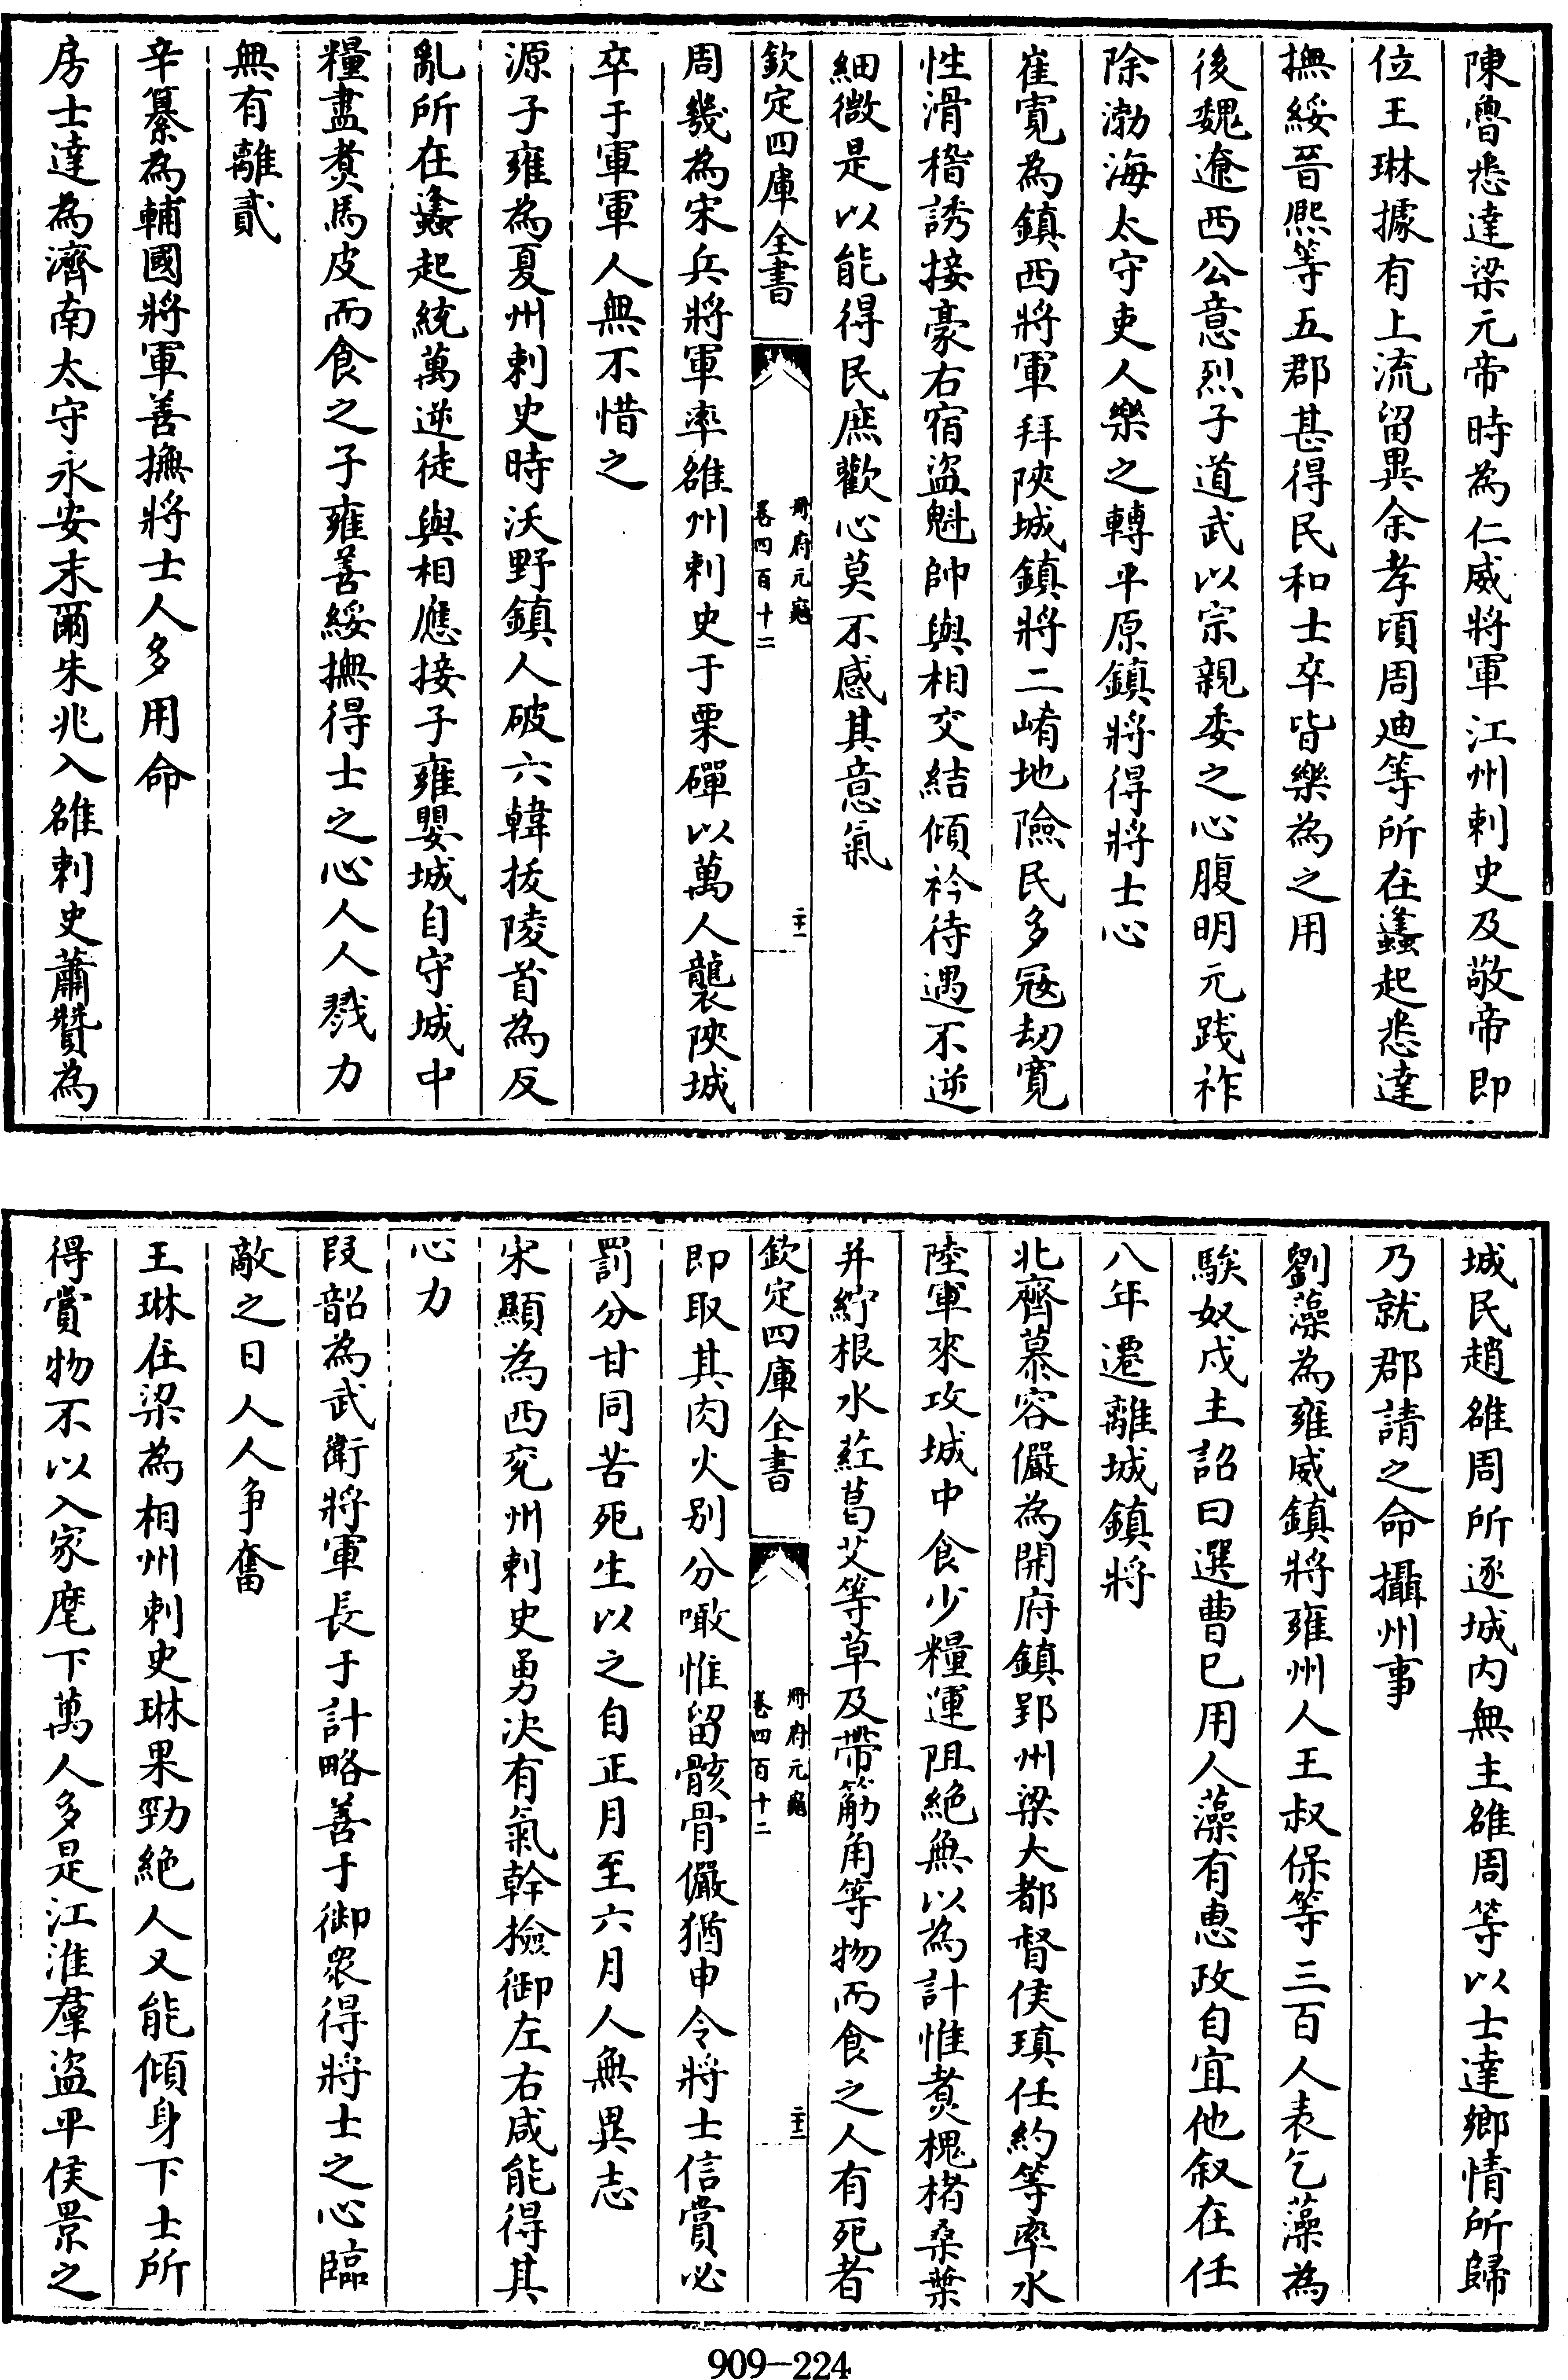 陳魯悉達梁元帝時為仁威將軍江州刺史及敬帝即
位王琳據有上流留異余孝頃周迪等所在蠭起悉達
撫綏晉熙等五郡甚得民和士卒皆樂為之用
後魏遼西公意烈子道武以宗親委之心腹明元踐祚
除渤海太守吏人樂之轉平原鎮將得將士心
崔寛為鎮西將軍拜陜城鎮將二崤地險民多冦刧寛
性滑稽誘接豪右宿盜魁帥與相交結傾衿待遇不逆
細微是以能得民庶歡心莫不感其意氣
欽定四庫全書
冊府元龜
卷四百十二
二十一
周幾為宋兵將軍率雒州刺史于栗磾以萬人襲陜城
卒于軍軍人無不惜之
源子雍為夏州刺史時沃野鎮人破六韓拔陵首為反
亂所在蠭起統萬逆徒與相應接子雍嬰城自守城中
糧盡煑馬皮而食之子雍善綏撫得士之心人人戮力
無有離貳
辛纂為輔國將軍善撫將士人多用命
房士達為濟南太守永安末爾朱兆入雒刺史蕭贊為
城民趙雒周所逐城内無主雒周等以士達鄉情所歸
乃就郡請之命攝州事
劉藻為雍威鎮將雍州人王叔保等三百人表乞藻為
騃奴戍主詔曰選曹已用人藻有恵政自宜他叙在任
八年遷離城鎮將
北齊慕容儼為開府鎮郢州梁大都督侯瑱任約等率水
陸軍來攻城中食少糧運阻絶無以為計惟煑槐楮桑葉
并紵根水葒葛艾等草及帶筋角等物而食之人有死者
欽定四庫全書
冊府元龜
卷四百十二
二十二
即取其肉火别分噉惟留骸骨儼猶申令將士信賞必
罰分甘同苦死生以之自正月至六月人無異志
宋顯為西兖州刺史勇决有氣幹撿御左右咸能得其
心力
段韶為武衛將軍長于計略善于御衆得將士之心臨
敵之日人人争奮
王琳在梁為相州刺史琳果勁絶人又能傾身下士所
得賞物不以入家麾下萬人多是江淮羣盜平侯景之
909-224